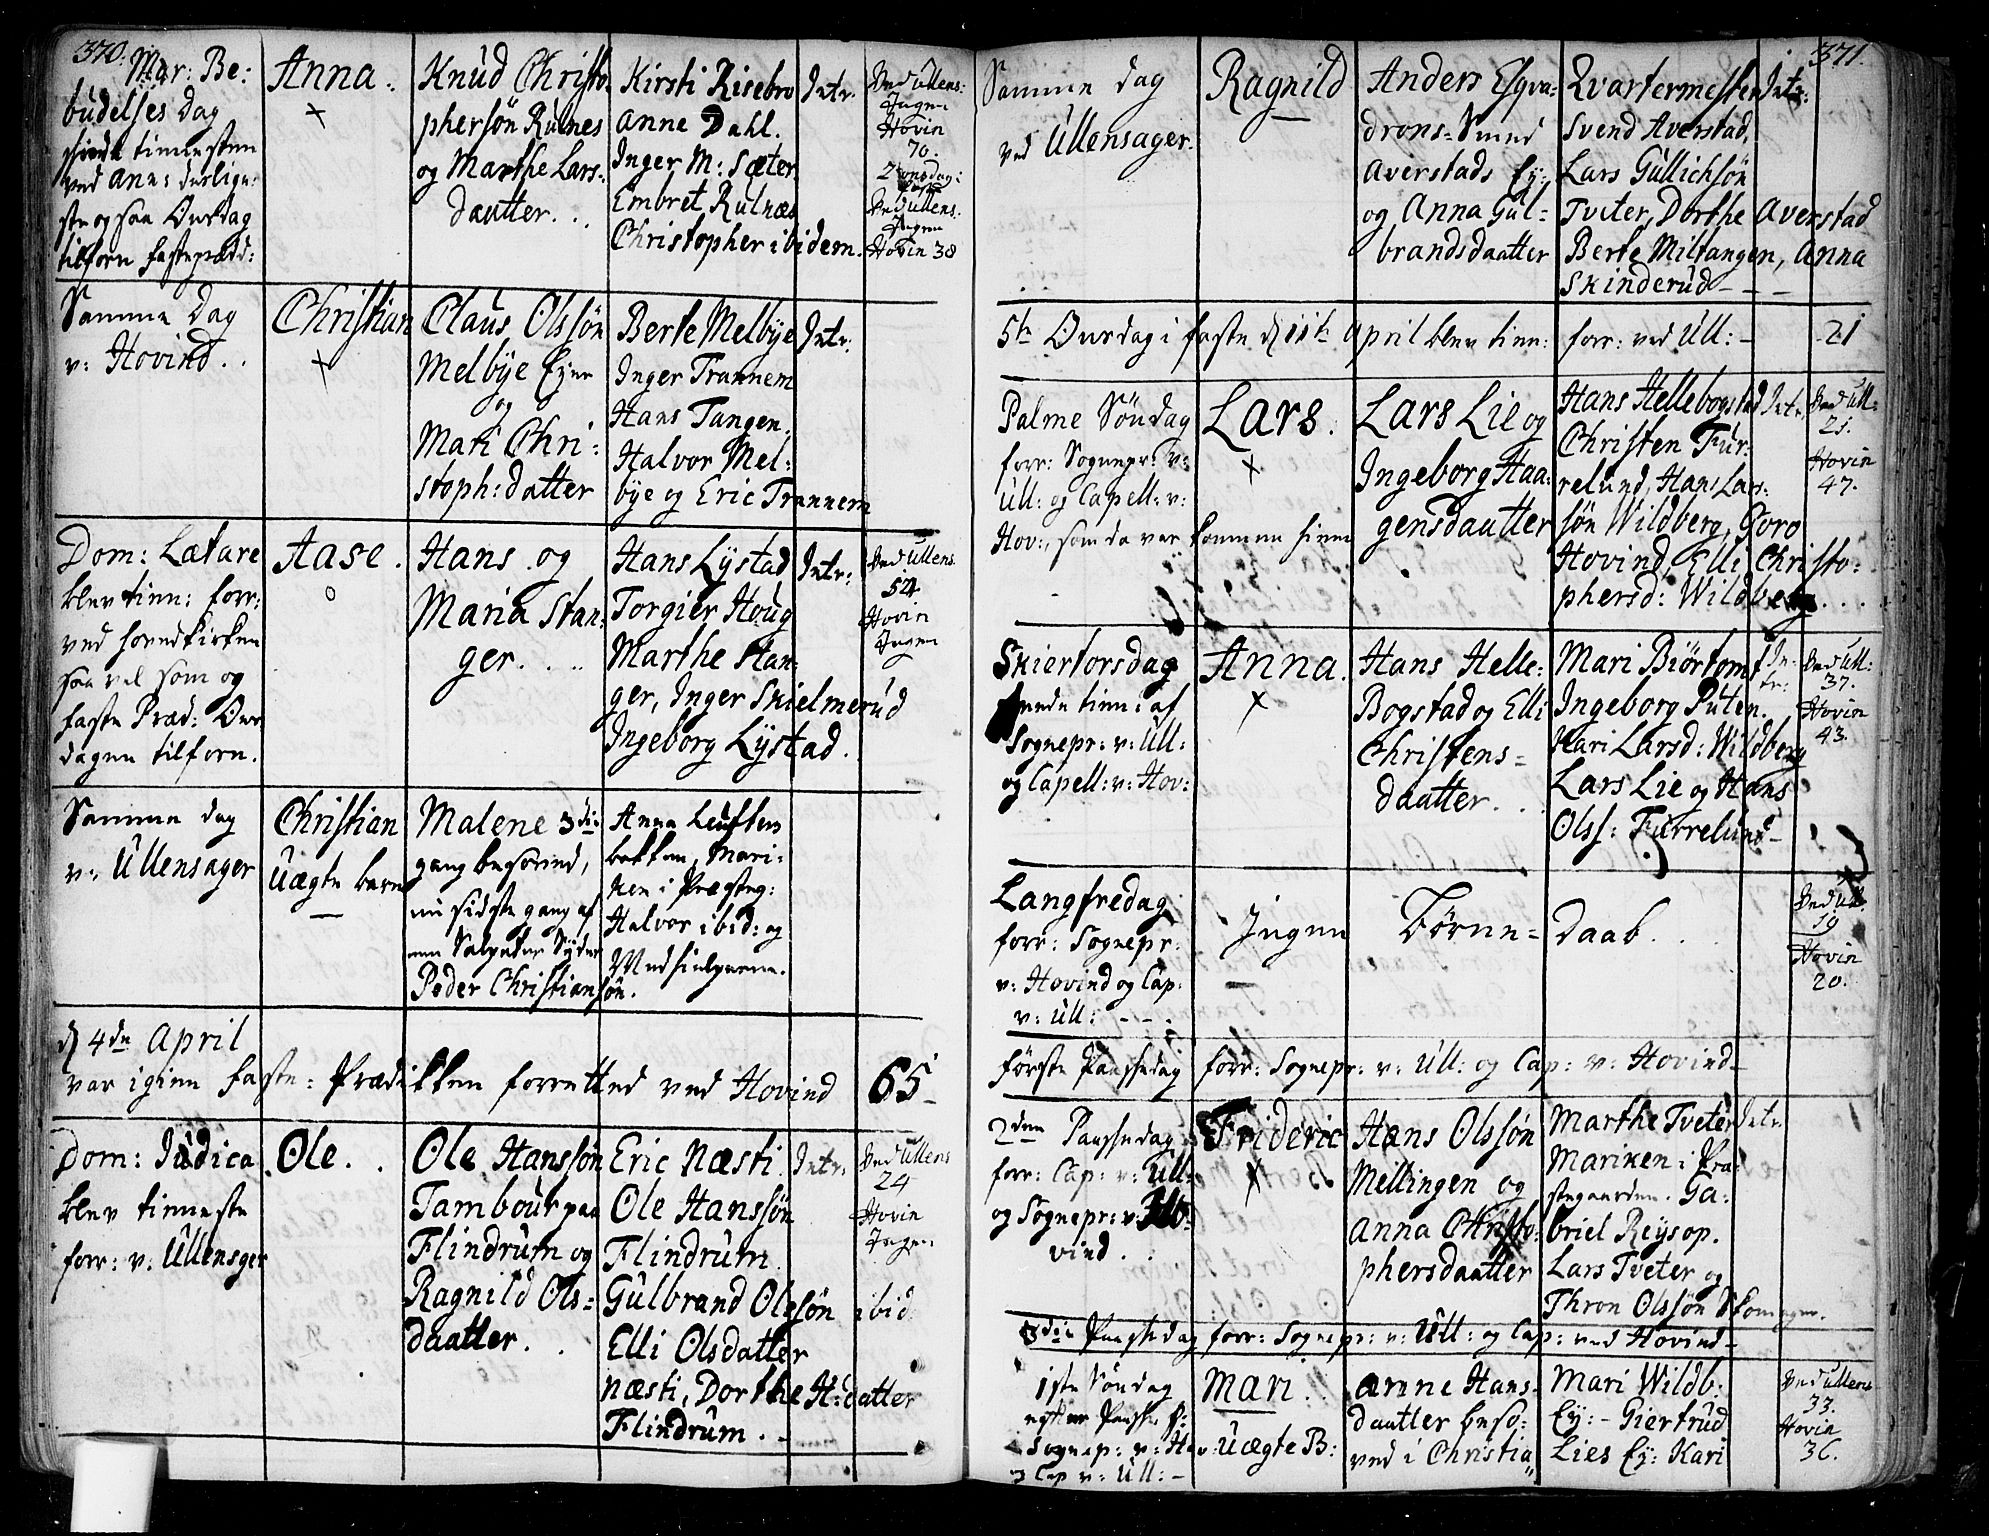 370.
Mar: Be:
budelses Dag
tienesten
ved
og saa Onsdag
tilforn fastepræd:
Anna.
Knud Christo
phersön Rulnes
og Marthe Lars:
daatter. .
Kirsti Risebro
Anne Dahl.
Inger M: Sæter
Embret Rulnæs
Christopher ibidem.
Intr.
Ved Ullens:
Ingen
Hovin
70.
2 onsdag:
faste
Ved Ullens.
Ingen
Hovin 38
Samme Dag
v: Hovind. .
Christian
Claus Olssön
Melbÿe Eÿer
og
Mari Chri:
stoph: datter
Berte Melbÿe
Inger Trannem
Hans Tangen.
Halvor Mel:
bÿe og Eric Trannem
Intr:
Dom: Lætare
blev tien: forr:
ved hovedkirken
saa vel som og
faste Præd: Ons
dagen tilforn.
Aase.
Hans og
Maria Stan:
ger. . . .
Hans Lÿstad
Torgier Houg
Marthe Stan:
ger, Inger Skielmerud
Ingeborg Lÿstad.
Intr:
Ved Ullens.
54
Hovin
Ingen
Samme dag
v: Ullensager
Christian
Uægte barn
Malene 3die
gang besovind,
nu sidste gang af
en Salpeter Sÿder
Peder Christiansön.
Anna Leuften
bakken, Mari:
ken i Præsteg:
Halvor ibid: og
Medhielperne.
d 4de April
var igien faste = Prædikken forretted ved Hovind
65
Dom: Judica
blev tieneste
forr: v: Ullensger
Ole. .
Ole Hanssön
Tambour paa
Flindrum og
Ragnild Ols=
daatter. .
Eric Næsti.
Ole Hanssön
Flindrum.
Gulbrand Olesön ibid
Elli Olsdatter
Næsti, Dorthe H:datter
Flindrum. -
Intr.
Ved Ullens
24
Hovin
Ingen
371.
Samme dag
ved Ullensager.
Ragnild
Anders Esqva=
drons=Smed
Averstads Eÿ:
og Anna Gul=
brandsdaatter
Qvartermester
Svend Averstad,
Lars Gullichsön
Tveter, Dorthe Averstad
Berte Miltangen, Anna
Skinderud - - -
Intr:
5te Onsdag i faste d 11te April blev tien: forr: ved Ull: -
21
Palme Söndag
forr: Sognepr: v:
Ull: og Capell: v:
Hov:, som da var kommen hiem
Lars.
Lars Lie og
Ingeborg Haa:
gensdaatter
Hans Hellebogstad
Christen Fur:
relund, Hans Lar:
sön Wildberg, Goro
Hovind, Elli Christo:
phersd: Wildberg. . .
Intr,
Ved Ull:
21.
Hovin
47.
Skiertorsdag
tien: af
Sognepr: v: Ull:
og Capell: v: Hov:
Anna.
Hans Helle:
Bogstad og Elli
Christens=
daatter. .
Mari Biörtomt
Ingeborg Puten.
Kari Larsd: Wildberg
Lars Lie og Hans
Olss: Furrelund-
In:
tr:
Ved Ull:
37.
Hovin
43.
Langfredag
forr: Sognepr:
v: Hovind og Cap:
v: Ull: - - .
Ingen Börne= daab. .
Ved Ull.
19
Hovin
20.
Förste Paaskedag forr: Sognepr: v: Ull: og Cap: v: Hovind-
2den Paaskedag
forr: Cap: v: Ull:
og Sognepr: v: Ho
vind. .
Frideric
Hans Olssön
Mellingen og
Anna Christo:
phersdaatter
Marthe Tveter
Mariken i Præ:
stegaarden. Ga:
briel Reÿsop.
Lars Tveter og
Thron Olssön Skomager.
Intr.
3die Paaskedag forr: Sognepr: v: Ull: og Cap: ved Hovind-
1ste Söndag
efter Paaske f:
Sognep: v: Hov:
og Cap v: Ull: -
Mari. .
Uægte B:
Anne Hans-
daatter beso:
ved i Christia"
Mari Wildb:
Eÿ: - Giertrud
Lies Eÿ: Kari
Ved Ullens
33.
Hovin
36.